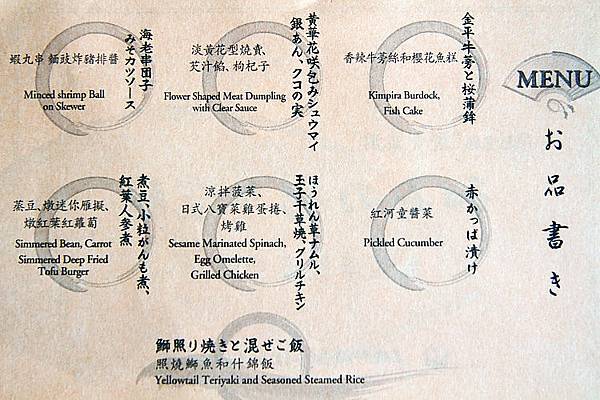 MENU
お品書き
金平牛蒡と桜蒲鉾
香辣牛蒡絲和櫻花魚糕
Kimpira Burdock,
Fish Cake
黄華花咲包みシュウマイ
銀あん、クコの実
淡黃花型燒賣、
芡汁餡、枸杞子
Flower Shaped Meat Dumpling
with Clear Sauce
海老串団子
みそカツソース
蝦丸串 麵豉炸豬排醬
Minced shrimp Ball
on Skewer
赤かっぱ漬け
紅河童醬菜
Pickled Cucumber
ほうれん草ナムル、
玉子千草焼、グリルチキン
涼拌菠菜、
日式八寶菜雞蛋捲、
烤雞
Sesame Marinated Spinach,
Egg Omelette,
Grilled Chicken
煮豆、小粒がんも煮、
紅葉人参煮
蒸豆、燉迷你雁擬、
燉紅葉紅蘿蔔
Simmered Bean, Carrot
Simmered Deep Fried
Tofu Burger
鰤照り焼きと混ぜご飯
照燒鰤魚和什錦飯
Yellowtail Teriyaki and Seasoned Steamed Rice